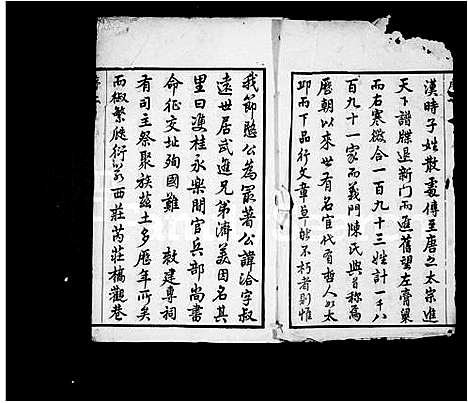 漢時子姓散處傳至唐之太宗進
天下譜牒退新門而進舊望左膏粱
而右寒微合一百九十三姓計一千八
百九十一家而義門陳氏與首称焉
歷朝以來世有名宦代有哲人如太
邱而下品行文章卓然不朽者則惟
我節愍公為最著公諱洽字叔
遠世居武進兄弟濟美因名其
里曰雙桂永樂間官兵部尚書
命征交址殉國難 敕建專祠
有司主祭聚族茲土多歷年所矣
而椒繁瓞衍若西莊芮莊橋觀巷